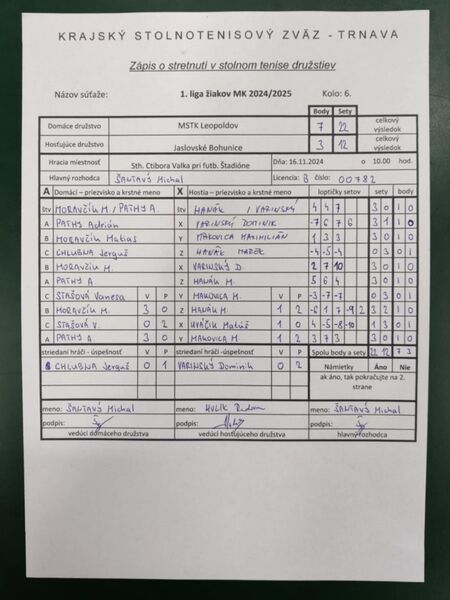 KRAJSKÝ STOLNOTENISOVÝ ZVÄZ - TRNAVA
Zápis o stretnutí v stolnom tenise družstiev
Názov súťaže: 1. liga žiakov MK 2024/2025 Kolo: 6.
Body Sety
Domáce družstvo MSTK Leopoldov 7 22 celkový výsledok
Hosťujúce družstvo Jaslovské Bohunice 3 12 celkový výsledok
Hracia miestnosť Sth. Ctibora Valka pri futb. Štadióne Dňa: 16.11.2024 o 10.00 hod.
Hlavný rozhodca ŠANTAVÝ Michal Licencia: B číslo 00782
A Domáci – priezvisko a krstné meno X Hostia – priezvisko a krstné meno loptičky setov sety body
štv MORAVČÍK M. / PATHY A. štv HANÁK / VARINSKÝ 4 4 7 3 0 1 0
A PATHY Adrián X VARINSKÝ DOMINIK -7 6 7 6 3 1 1 0
B MORAVČÍK Matias Y MAKOVICA MAXIMILIÁN 1 3 3 3 0 1 0
C CHLUBNA Jerguš Z HANÁK MAREK -4 -5 -4 0 3 0 1
B MORAVČÍK M. X VARINSKÝ D. 2 7 10 3 0 1 0
A PATHY A. Z HANÁK M. 5 6 4 3 0 1 0
C STAŠOVÁ Vanesa V P Y MAKOVICA M. V P -3 -7 -7 0 3 0 1
B MORAVČÍK M. 3 0 Z HANÁK M. 1 2 -6 1 7 -9 2 3 2 1 0
C STAŠOVÁ V. 0 2 X HVÁČIK Matúš 1 0 4 -5 -8 -10 1 3 0 1
A PATHY A. 3 0 Y MAKOVICA M. 1 2 3 7 3 3 0 1 0
striedaní hráči - úspešnosť V P striedaní hráči - úspešnosť V P Spolu body a sety 22 12 7 3
CHLUBNA Jerguš 0 1 VARINSKÝ Dominik 0 2 Námietky Áno Nie
ak áno, tak pokračujte na 2. strane
meno: ŠANTAVÝ Michal meno: meno: ŠANTAVÝ Michal
podpis: podpis: podpis:
vedúci domáceho družstva vedúci hosťujúceho družstva hlavný rozhodca